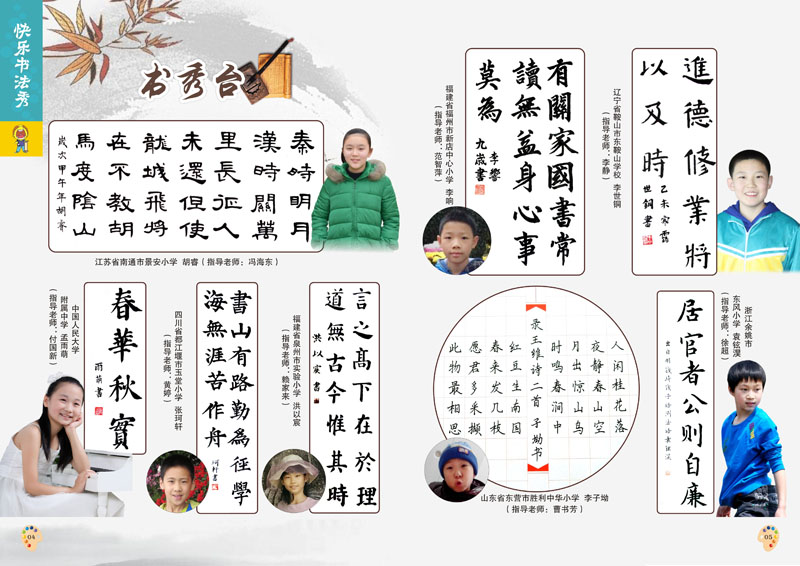 快乐书法秀
书秀台
秦時明月
漢時關萬
里長征人
未還但使
龍城飛將
在不教胡
馬度陰山
歲次甲午年胡睿
江苏省南通市景安小学 胡睿（指导老师：冯海东）
春華秋實
雨萌書
中国人民大学
附属中学 孟雨萌
（指导老师：付国新）
書山有路勤為徑學
海無涯苦作舟
珂軒書
四川省都江堰市玉堂小学 张珂轩
（指导老师：黄婷）
言之高下在於理
道無古今惟其時
洪以宸書
福建省泉州市实验小学 洪以宸
（指导老师：赖家来）
04
有關家國書常
讀無益身心事
莫為
李響
九歲書
福建省福州市新店中心小学 李响
（指导老师：范智萍）
進德修業將
以及時
乙未寒露
世銅書
辽宁省鞍山市东鞍山学校 李世铜
（指导老师：李静）
人闲桂花落
夜静春山空
月出惊山鸟
时鸣春涧中
录王维诗二首 子坳书
红豆生南国
春来发几枝
愿君多采撷
此物最相思
山东省东营市胜利中华小学 李子坳
（指导老师：曹书芳）
居官者公则自廉
浙江余姚市
东风小学 袁铉淏
（指导老师：徐超）
05